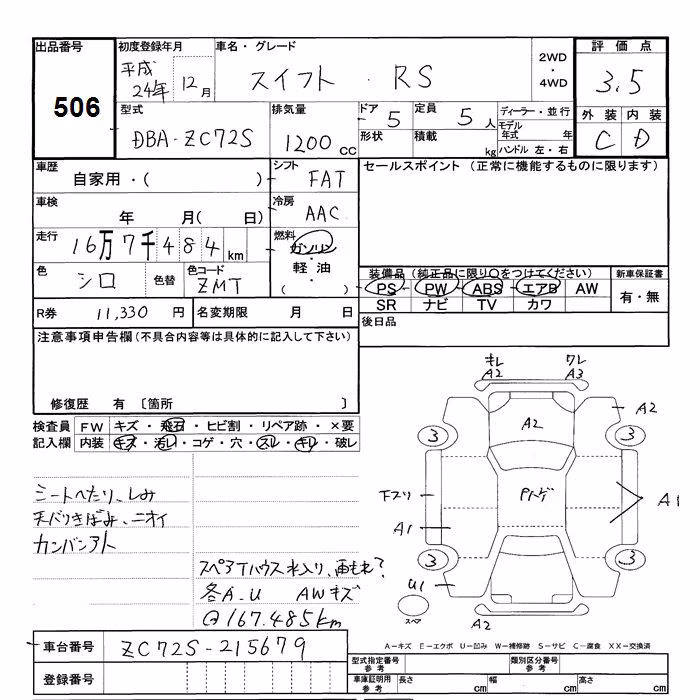 出品番号 初度登録年月 車名・グレード 2WD・4WD 評価点
506 平成24年 12月 スイフト・RS 3.5
型式 排気量 ドア 5 定員 5人 ディーラー・並行 外装 内装
DBA-ZC72S 1200cc 形状 積載 kg モデル年式 年 C D
ハンドル 左・右
車歴 シフト セールスポイント(正常に機能するものに限ります)
自家用・( ) FAT
車検 冷房
年 月( 日) AAC
走行 燃料
16万7千484km ガソリン・軽油・( )
色 色替 色コード 装備品(純正品に限り○をつけてください) 新車保証書
シロ ZMT PS PW ABS エアB AW 有・無
SR ナビ TV カワ
R券 11,330円 名変期限 月 日 後日品
注意事項申告欄(不具合内容等は具体的に記入して下さい)
修復歴 有 〔箇所 〕
検査員記入欄 FW キズ・飛石・ヒビ割・リペア跡・×要
内装 キズ・汚レ・コゲ・穴・スレ・キレ・破レ
シートへたり、しみ
天バリきばみ、ニオイ
カンバンアト
スペアTハウス水入り、雨もれ?
各A.U AWキズ
@167.485km
キレ ワレ
A2 A3
A2 A2
3 3
下スリ Pハゲ A1
A1
3 3
U1
スペア A2
車台番号 ZC72S-215679
登録番号
A-キズ E-エクボ U-凹み W-補修跡 S-サビ C-腐食 XX-交換済
型式指定番号 参考 類別区分番号 参考
車庫証明用 参考 長さ cm 幅 cm 高さ cm